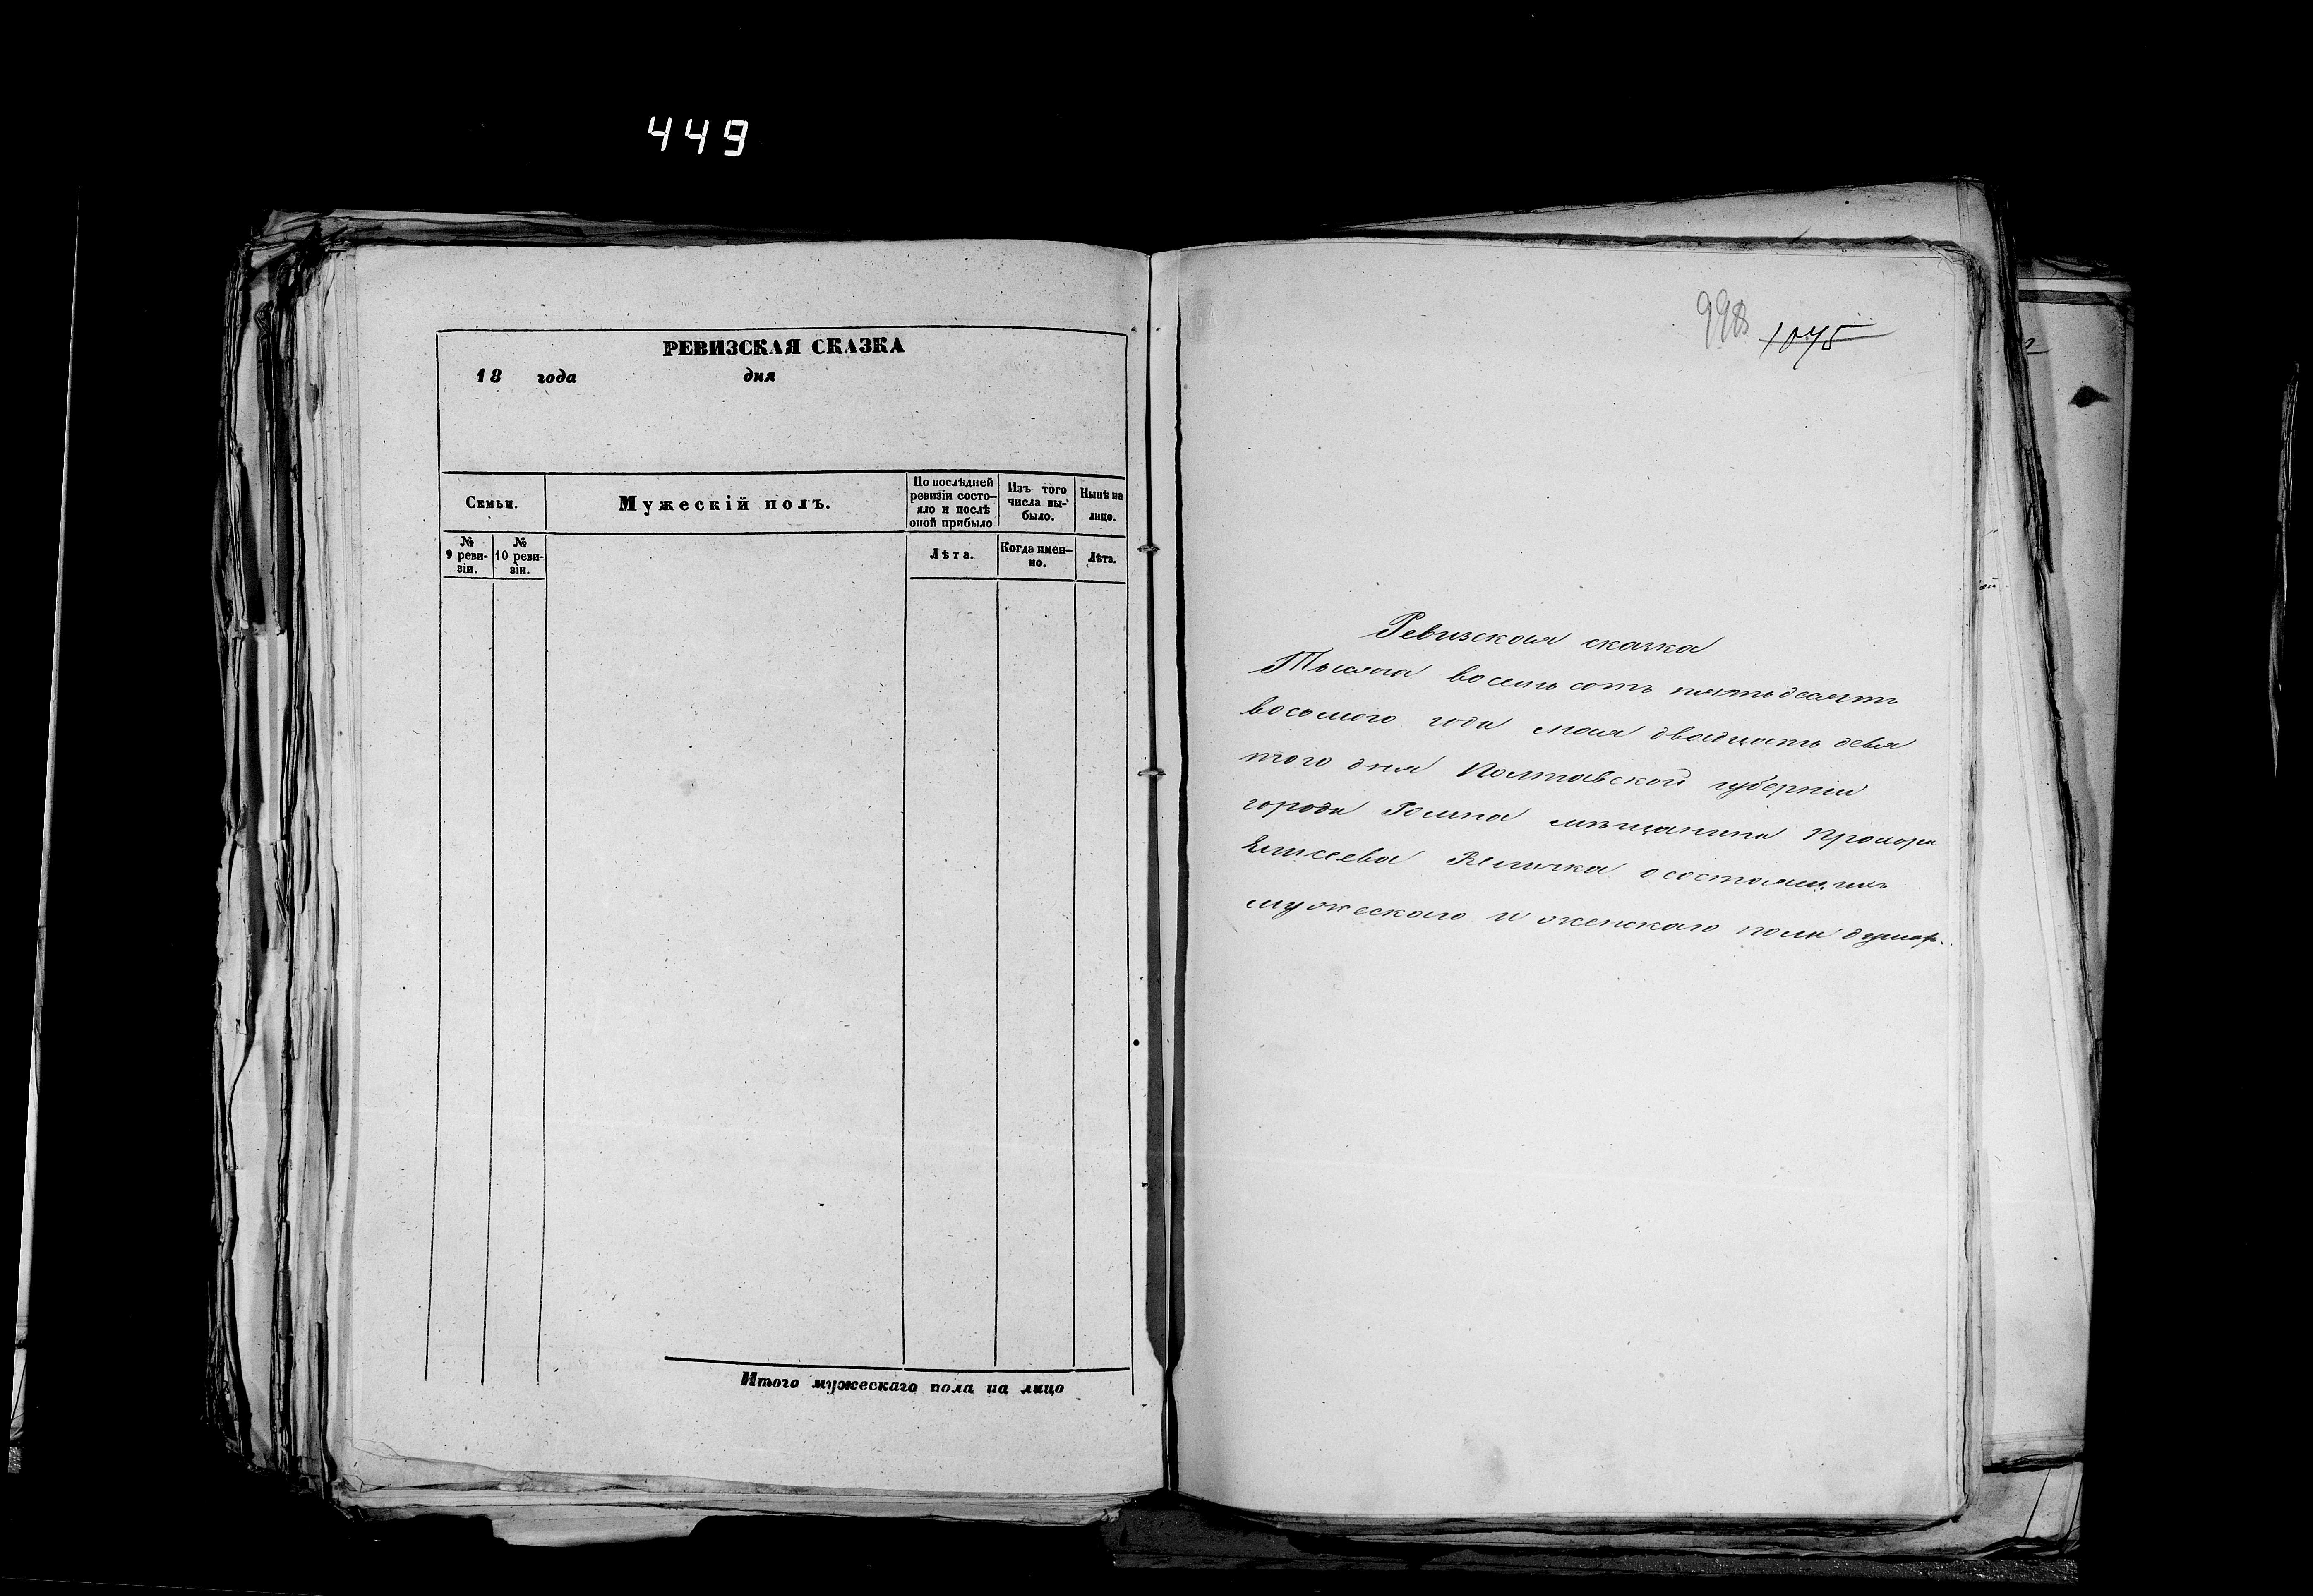 449
РЕВИЗСКАЯ СКАЗКА
18 года дня
Семьи.
Мужескій полъ.
По послѣдней ревизіи состо-
яло и послѣ оной прибыло
Изъ того числа вы-
было.
Нынѣ на лицо.
№ 9 реви-
зіи.
№ 10 реви-
зіи.
Лѣта.
Когда имен-
но.
Лѣта.
Итого мужескаго пола на лицо
998 1075
Ревизская сказка
Тысяча восемь сотъ пятьдесятъ
восьмого года мая двадцать девя
того дня Полтавской губерніи
города Ромна мѣщанина Прохора
Елисеева о состоящихъ
мужескаго и женскаго пола душах.